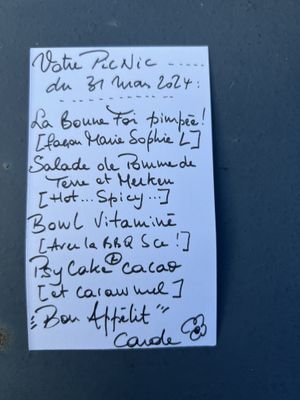 Votre PicNic -----
du 31 mai 2024 :
La Bonne Foi pimpée !
[façon Marie Sophie L]
Salade de Pomme de
Terre et Merken
[Hot... Spicy...]
Bowl Vitaminé
[Avec la BBQ Sce !]
PsyCake cacao
[et caramel]
"Bon Appétit"
Carole